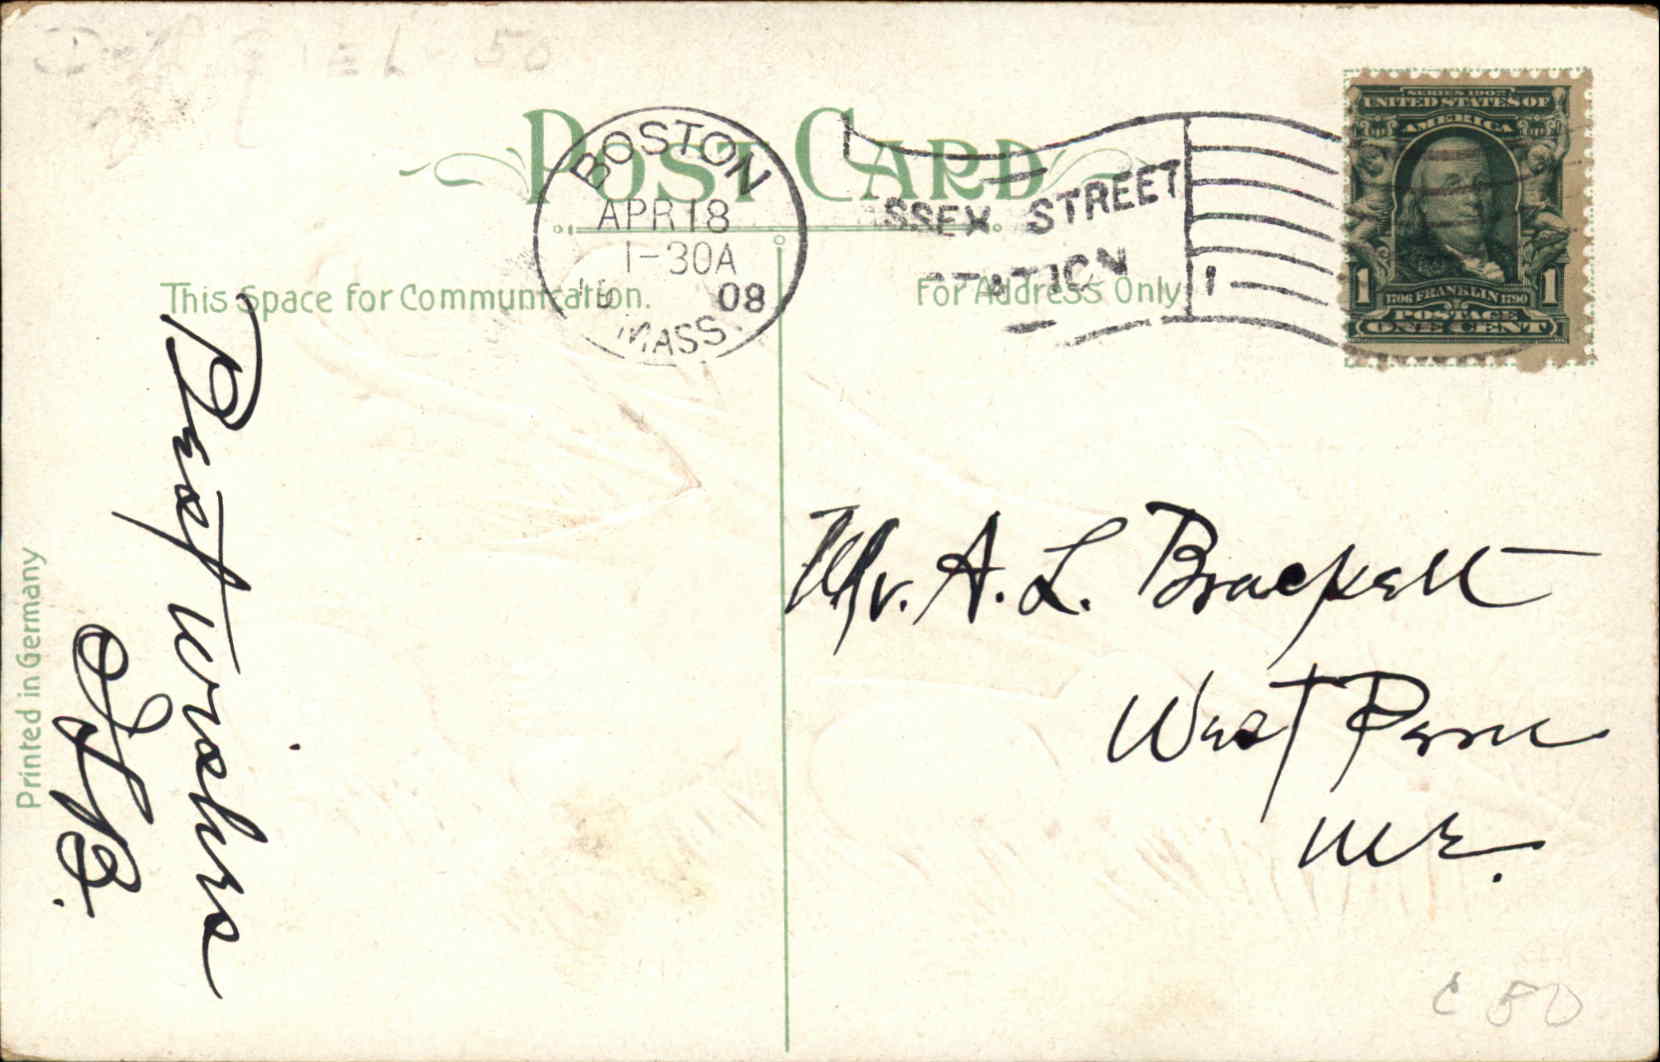 POST CARD
BOSTON
APR 18
1-30A
08
MASS.
SSEX STREET
STATION
1
SERIES 1902
UNITED STATES OF
AMERICA
1 1
1706 FRANKLIN 1790
POSTAGE
ONE CENT
This Space for Communication.
For Address Only.
Best wishes
Printed in Germany
Mr. A. L. Brackett
West Peru
Me.
C 50